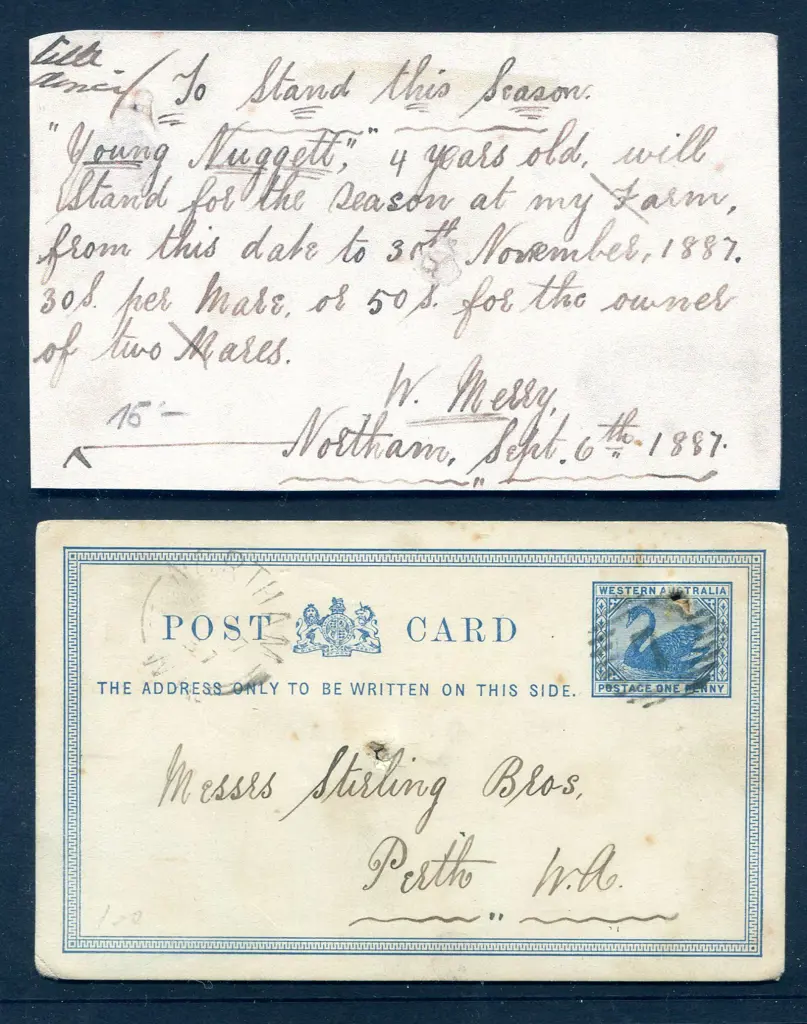 To Stand this Season.
"Young Nuggett," 4 years old, will
Stand for the season at my Farm,
from this date to 30th November, 1887.
30s. per Mare, or 50s. for the owner
of two Mares.
15 -
W. Merry,
Northam, Sept. 6th 1887.
NORTHAM
WESTERN AUSTRALIA
POST CARD
THE ADDRESS ONLY TO BE WRITTEN ON THIS SIDE.
POSTAGE ONE PENNY
Messrs Stirling Bros,
Perth W.A.